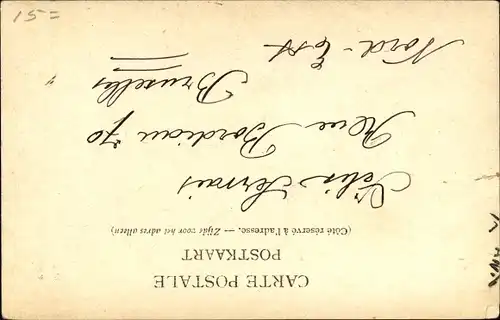 CARTE POSTALE
POSTKAART
(Côté réservé à l'adresse. — Zijde voor het adres alleen)
Félix Servais
Rue Bordiau 70
Bruxelles
Nord-Est
15=